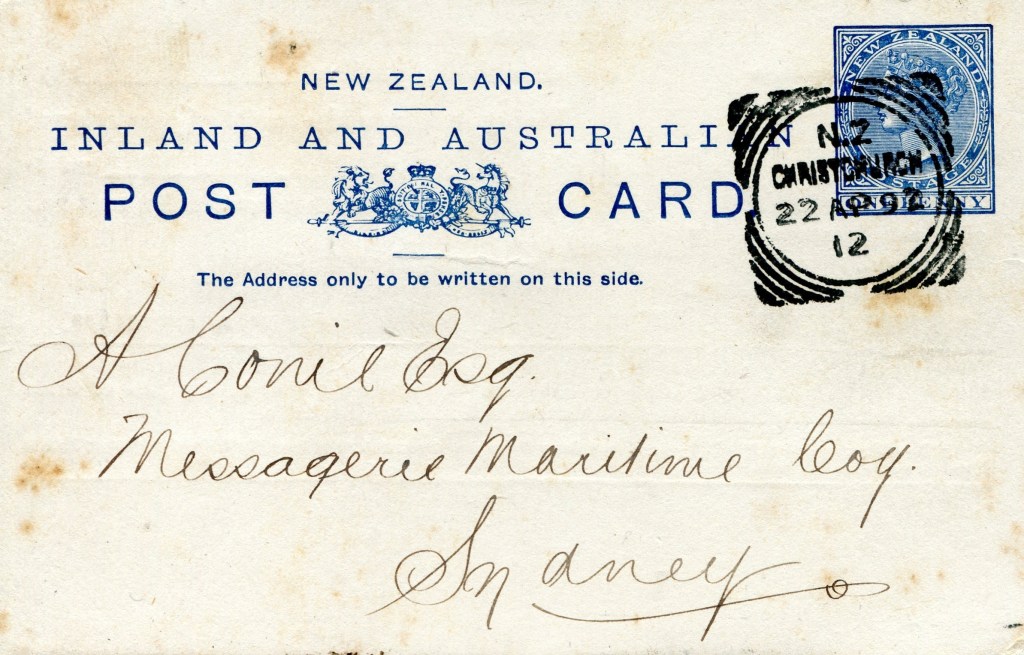 NEW ZEALAND.
INLAND AND AUSTRALIAN
POST CARD.
The Address only to be written on this side.
NEW ZEALAND.
POSTAGE
ONE PENNY
N.Z
CHRISTCHURCH
22 AP 92
12
A Conil Esq.
Messagerie Maritime Coy.
Sydney